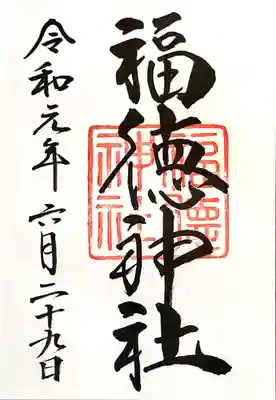 福徳神社
令和元年 六月二十九日
福德神社